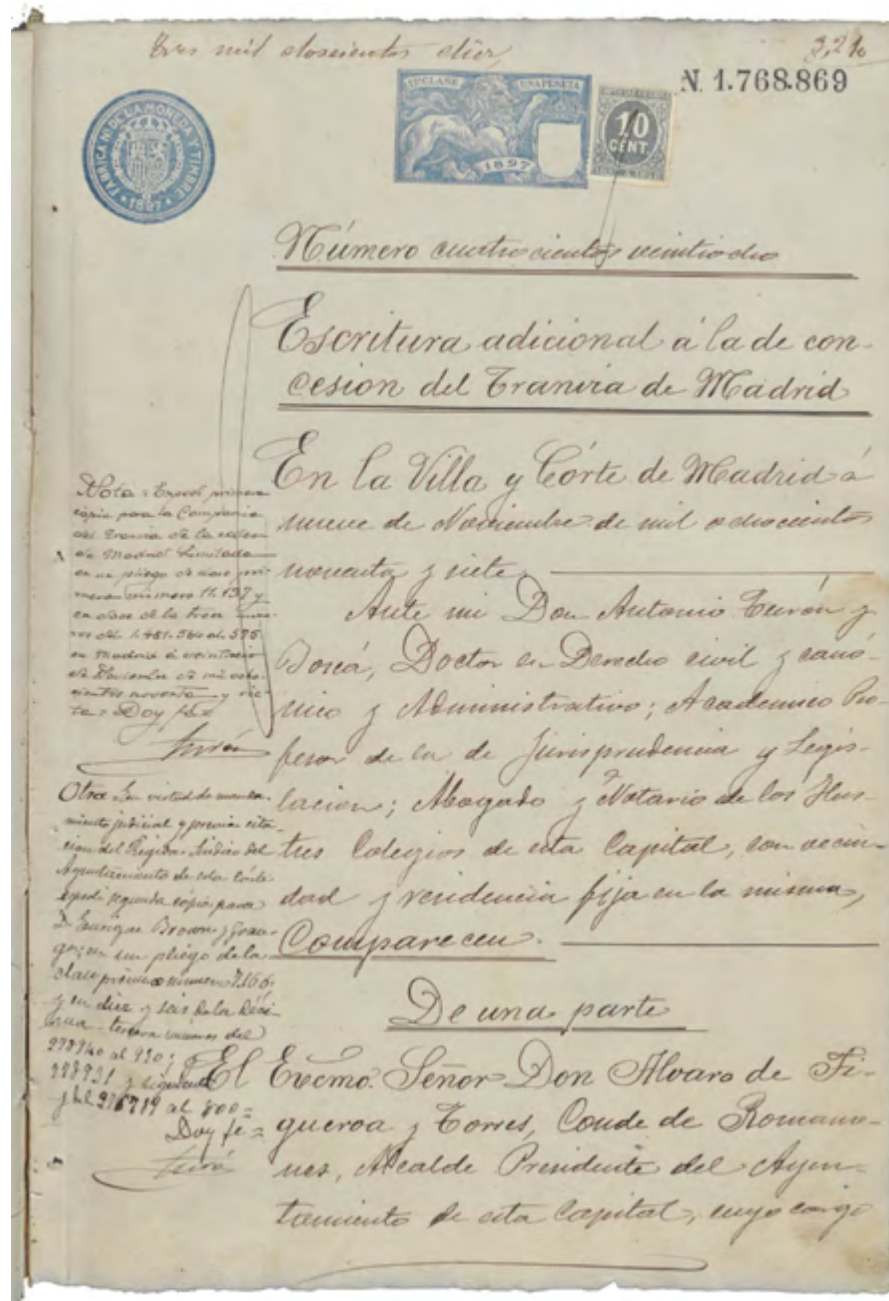 Tres mil doscientos diez
3,210
N. 1.768.869
FABRICA NL DE LA MONEDA Y TIMBRE
1897
CLASE
UNA PESETA
1897
10
CENT.
Número cuatrocientos veintiocho
Escritura adicional á la de con-
cesion del Tranvia de Madrid
En la Villa y Córte de Madrid á
nueve de Noviembre de mil ochocientos
noventa y siete.
Ante mi Don Antonio Turón y
Boscá, Doctor en Derecho civil y canó-
nico y Administrativo; Academico Pro-
fesor de la de Jurisprudencia y Legis-
lacion; Abogado y Notario de los Ilus-
tres Colegios de esta Capital, con vecin-
dad y residencia fija en la misma,
Comparecen.
De una parte
El Excmo. Señor Don Alvaro de Fi-
gueroa y Torres, Conde de Romano-
nes, Alcalde Presidente del Ayun-
tamiento de esta Capital, cuyo cargo
Nota = Expedí primera
copia para la Compania
del Tranvia de
de Madrid Limitada
en un pliego de clase pri-
mera número 11.137 y
en doce de la
del 1.481.564 al 575
en Madrid á
de Noviembre de mil ocho-
cientos noventa y sie-
te = Doy fe =
Turón
Otra = En virtud de manda-
miento judicial y previa cita-
cion del Regidor Sindico del
Ayuntamiento de esta Corte
expedí segunda copia para
D. Enrique Brown y
en un pliego de la
clase primera número 7166
y en diez y seis de la déci-
ma tercera
al 990;
y
al 800 =
Doy fe =
Turón